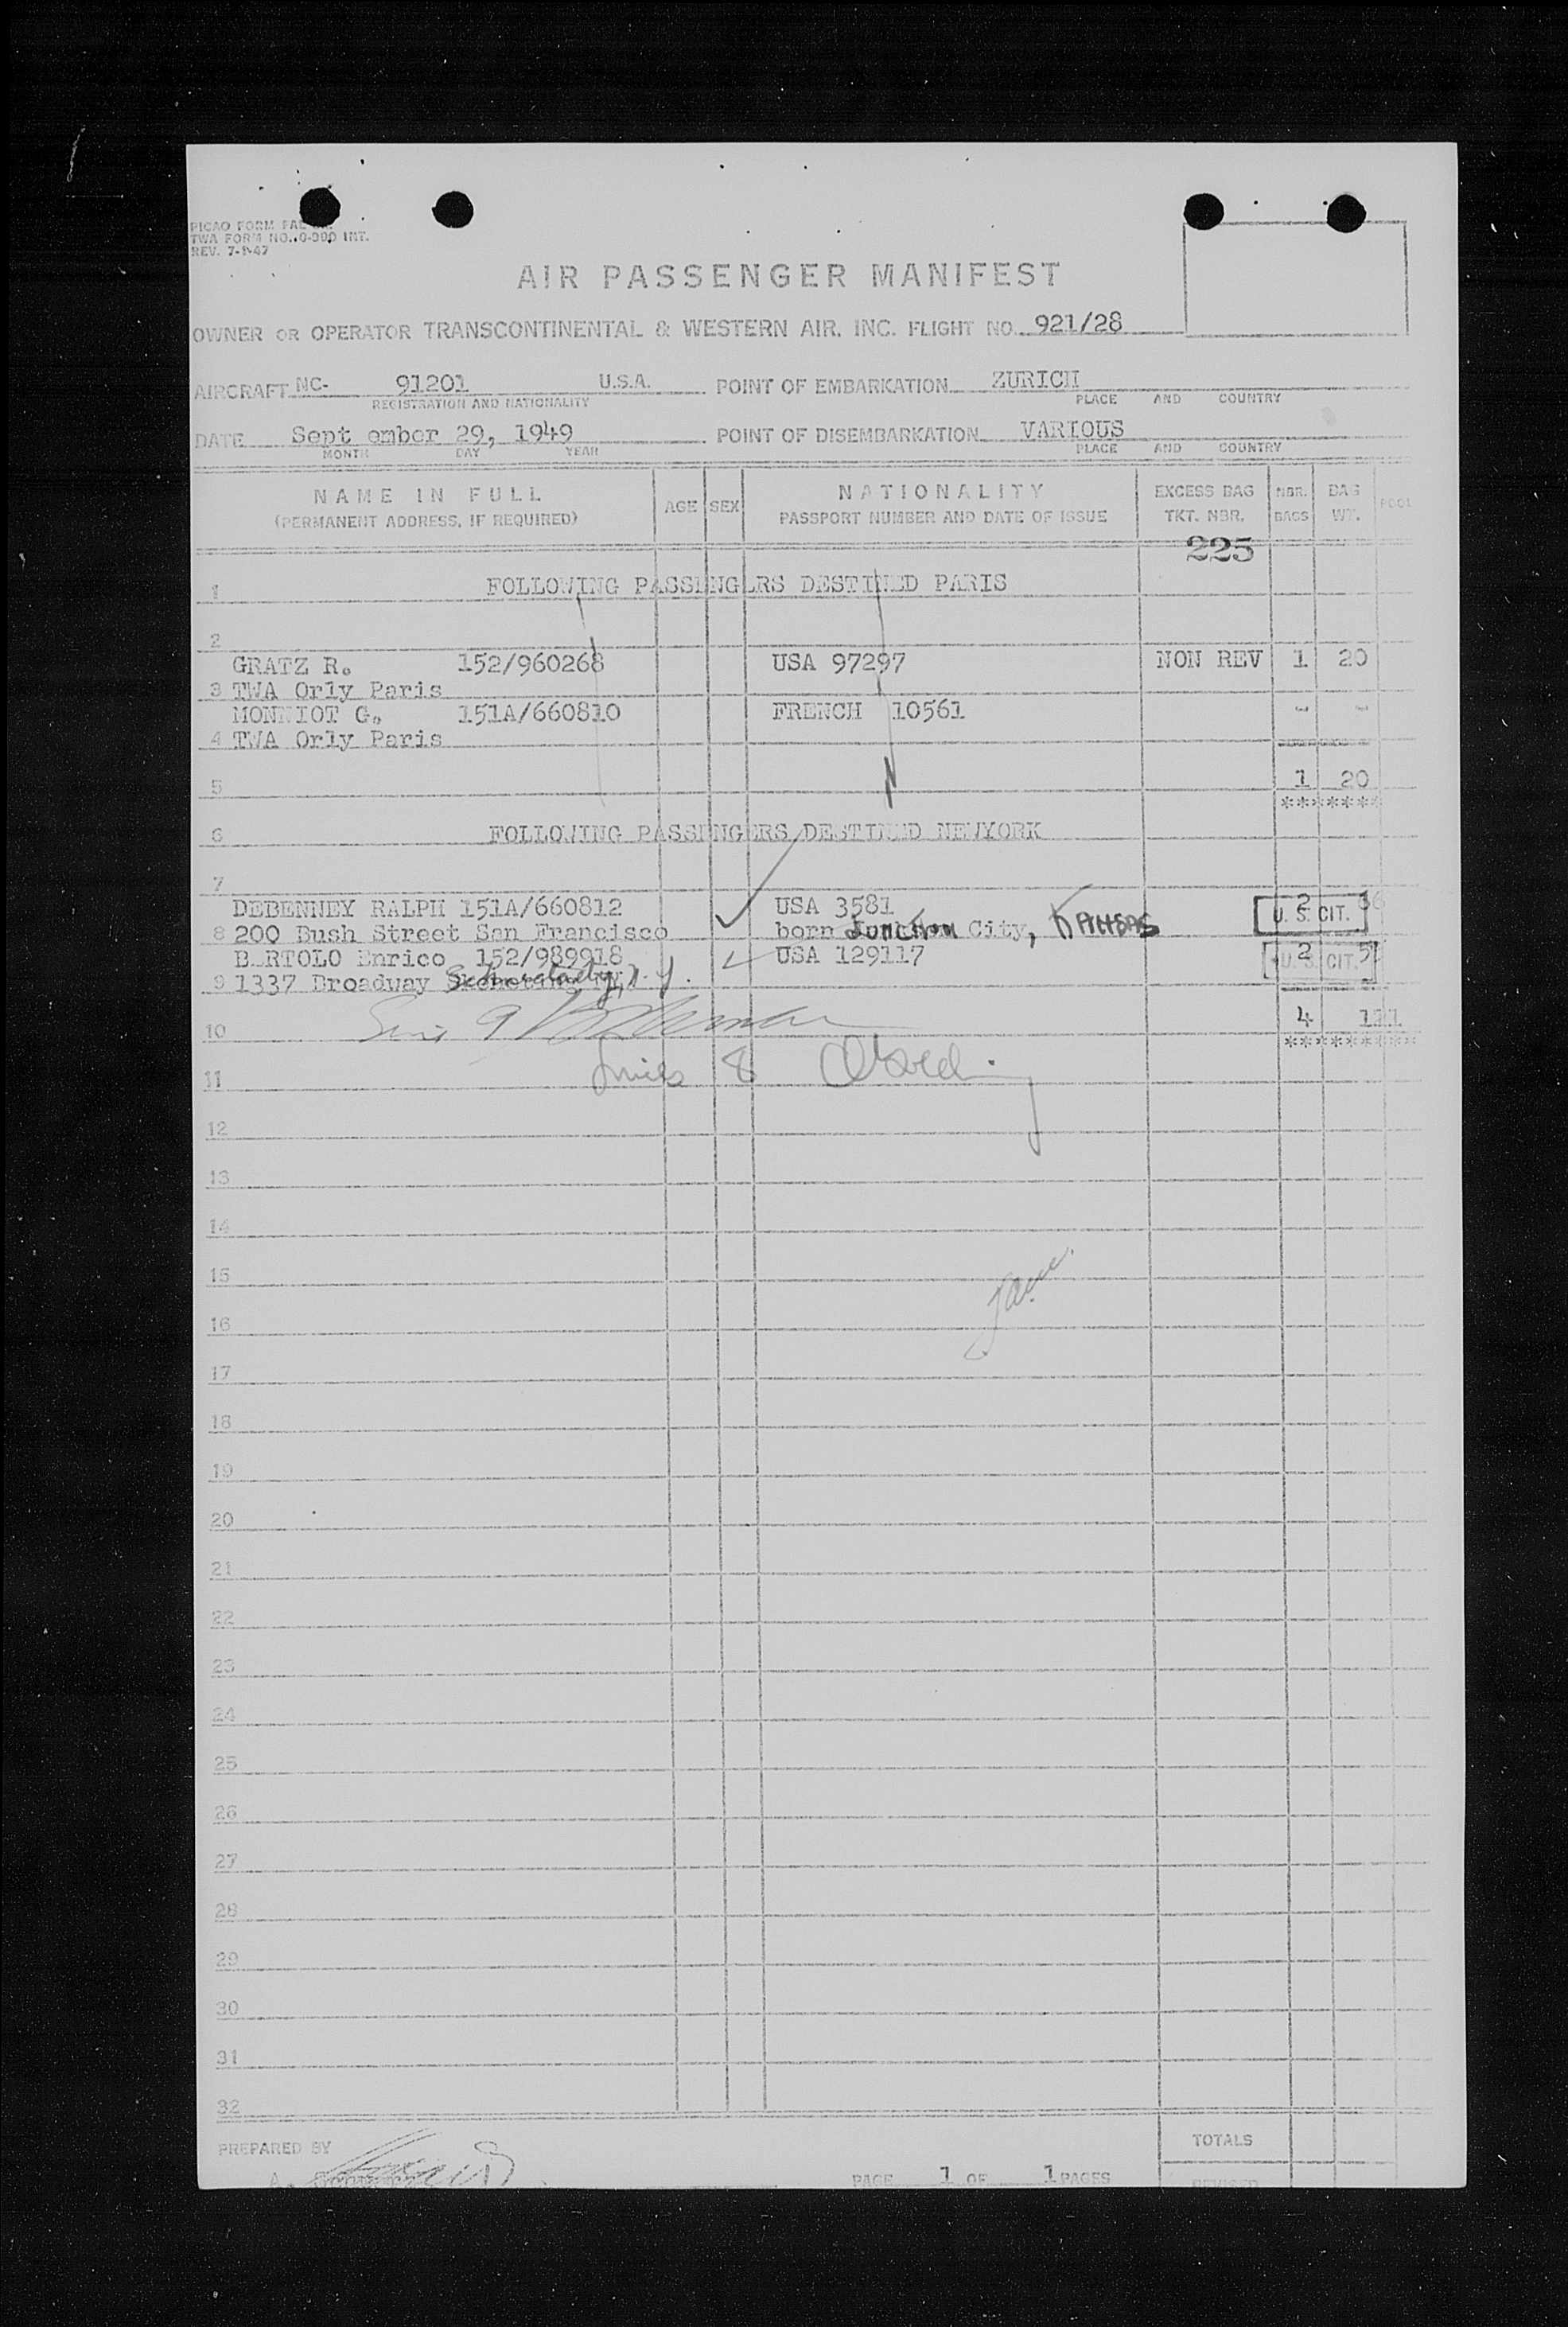 PICAO FORM FAL
TWA FORM NO. 0-300 INT.
REV. 7-1-47
AIR PASSENGER MANIFEST
OWNER OR OPERATOR TRANSCONTINENTAL & WESTERN AIR, INC. FLIGHT NO. 921/28
AIRCRAFT NC- 91201 U.S.A. POINT OF EMBARKATION ZURICH
REGISTRATION AND NATIONALITY PLACE AND COUNTRY
DATE Sept ember 29, 1949 POINT OF DISEMBARKATION VARIOUS
MONTH DAY YEAR PLACE AND COUNTRY
NAME IN FULL AGE SEX NATIONALITY EXCESS BAG NBR. BAG POOL
(PERMANENT ADDRESS, IF REQUIRED) PASSPORT NUMBER AND DATE OF ISSUE TKT. NBR. BAGS WT.
225
1 FOLLOWING PASSENGERS DESTINED PARIS
2
GRATZ R. 152/960268 USA 97297 NON REV 1 20
3 TWA Orly Paris
MONNIOT G. 151A/660810 FRENCH 10561 - -
4 TWA Orly Paris
5 1 20
********
6 FOLLOWING PASSENGERS DESTINED NEWYORK
7
DEBENNEY RALPH 151A/660812 USA 3581 2
8 200 Bush Street San Francisco born Junction City, KANSAS U. S. CIT.
BERTOLO Enrico 152/989918 USA 129117 2 U. S. CIT.
9 1337 Broadway Schenectady, N.Y.
10 4 111
*********
11
12
13
14
15
16
17
18
19
20
21
22
23
24
25
26
27
28
29
30
31
32
PREPARED BY TOTALS
A. PAGE 1 OF 1 PAGES REVISED